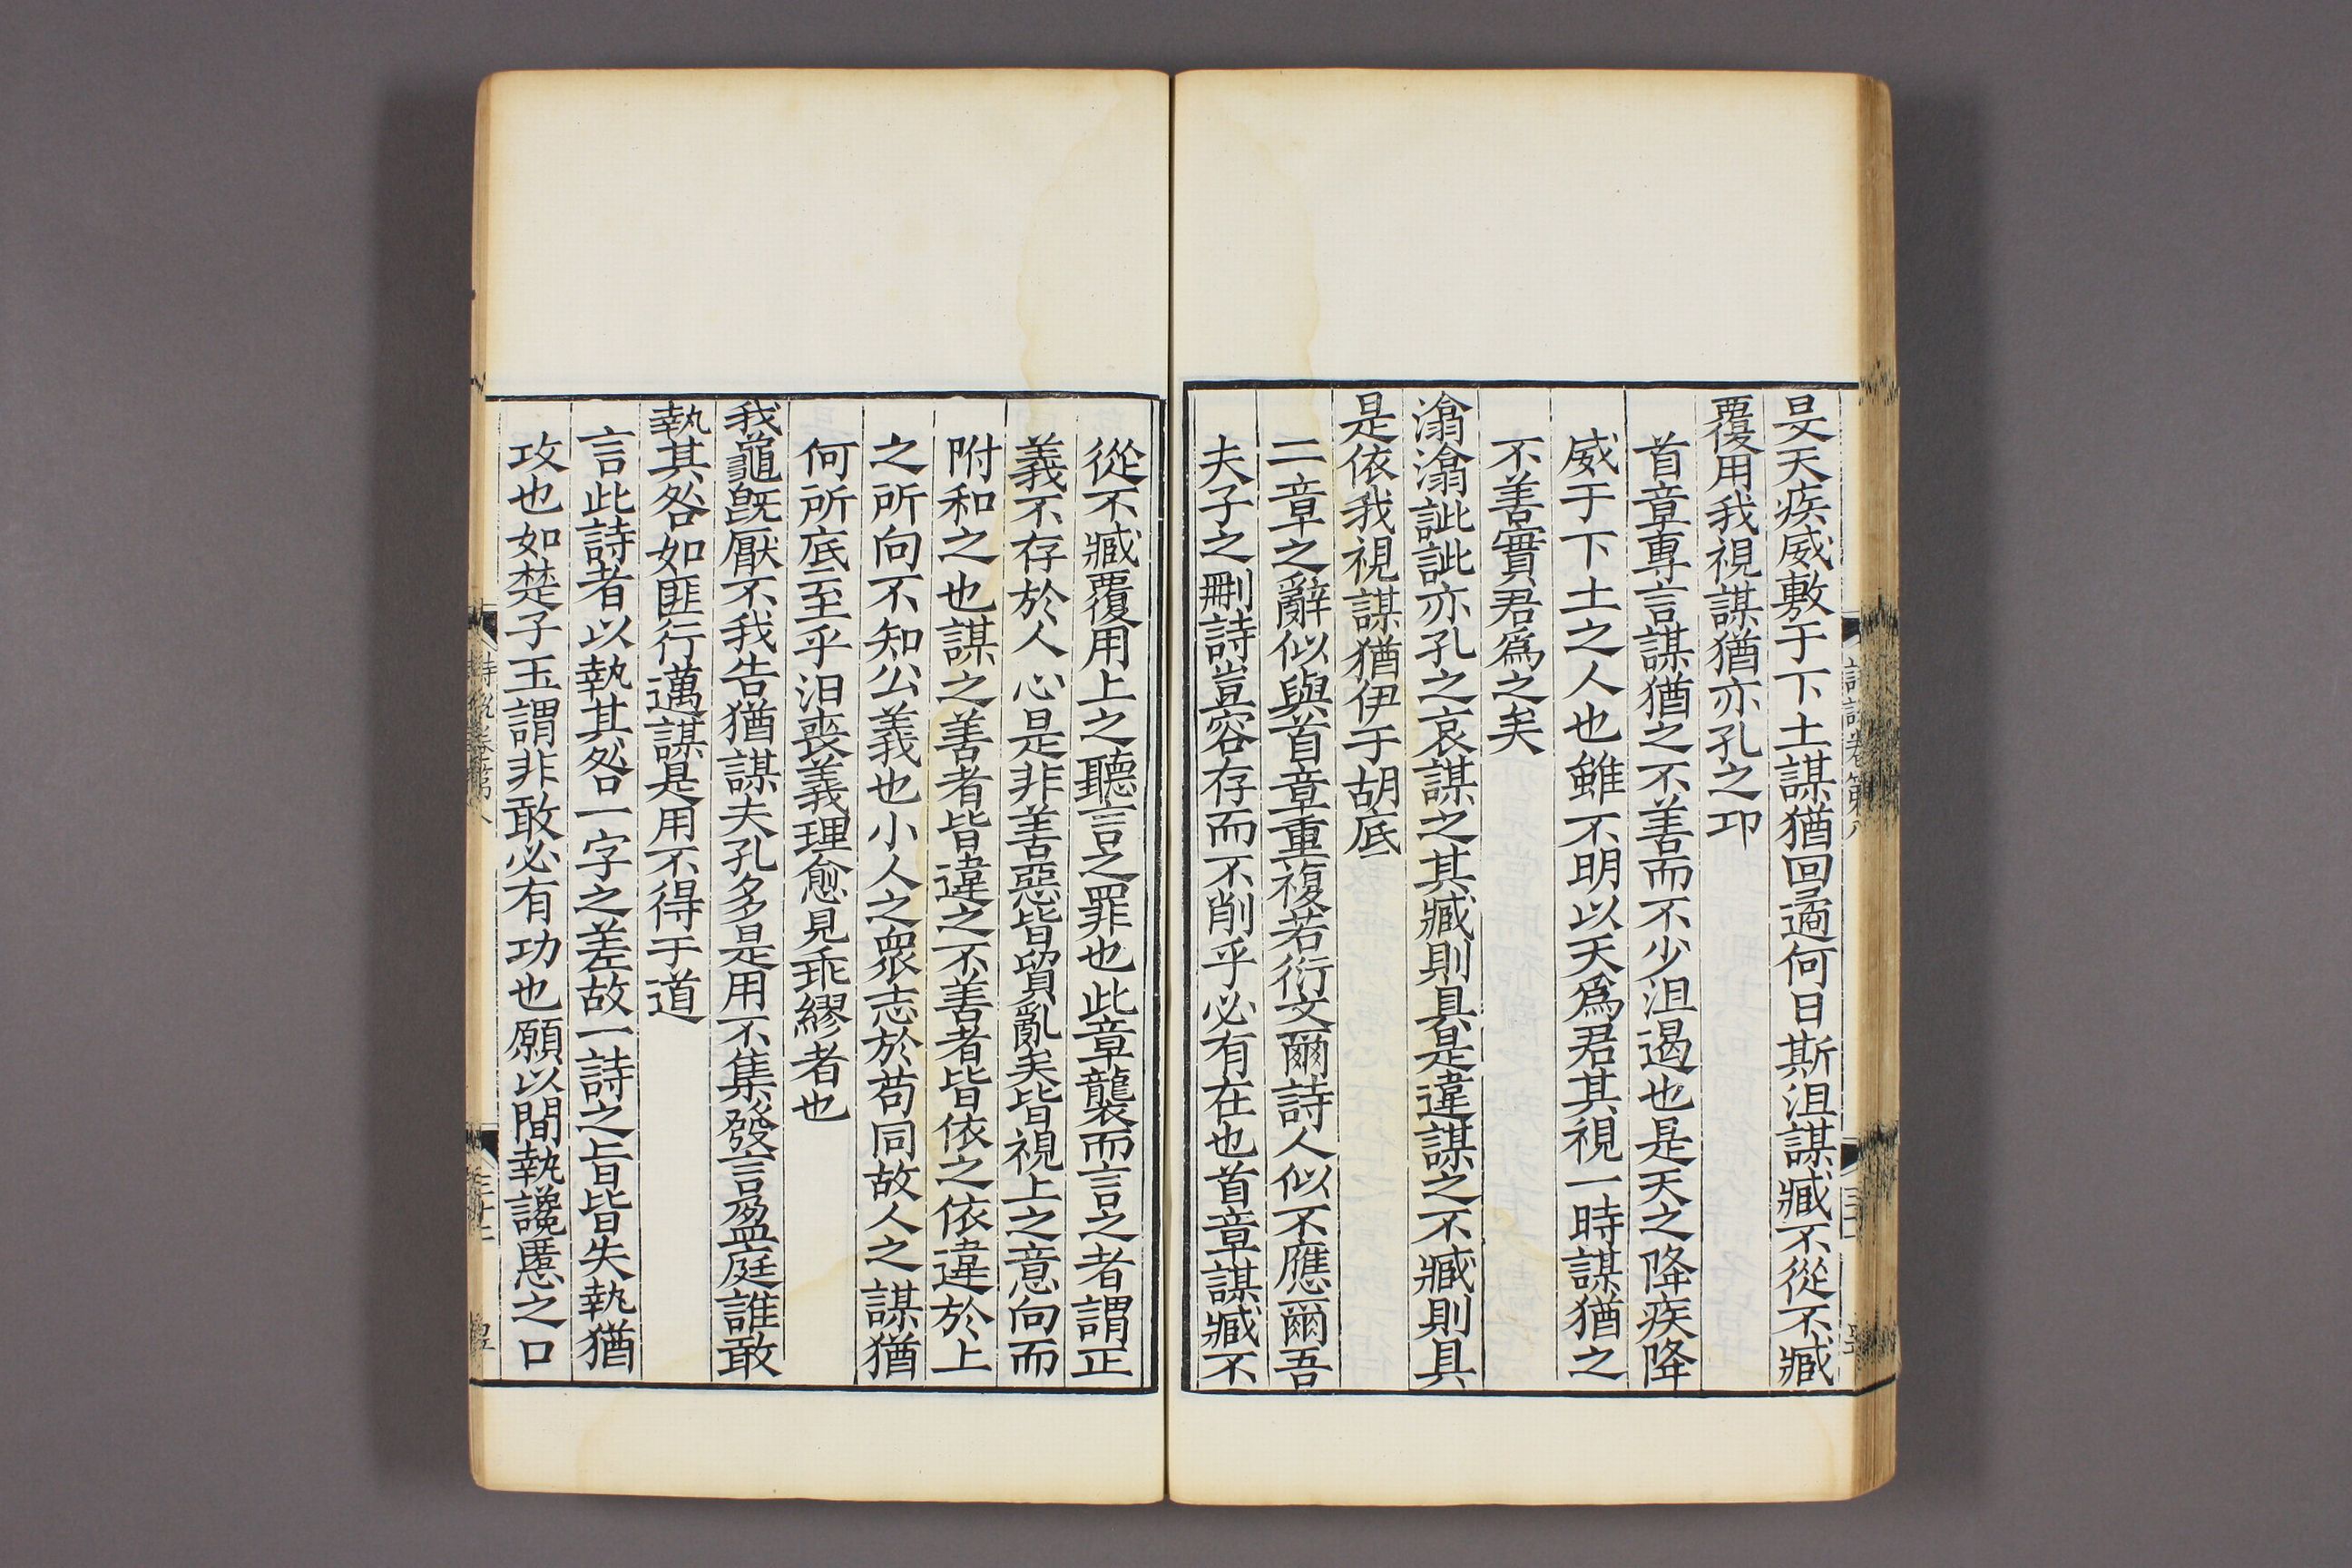 旻天疾威敷于下土謀猶回遹何日斯沮謀臧不從不臧
覆用我視謀猶亦孔之卭
首章專言謀猶之不善而不少沮遏也是天之降疾降
威于下土之人也雖不明以天爲君其視一時謀猶之
不善實君爲之矣
潝潝訿訿亦孔之哀謀之其臧則具是違謀之不臧則具
是依我視謀猶伊于胡底
二章之辭似與首章重複若衍文爾詩人似不應爾吾
夫子之刪詩豈容存而不削乎必有在也首章謀臧不
從不臧覆用上之聽言之罪也此章襲而言之者謂正
義不存於人心是非善惡皆貿亂矣皆視上之意向而
附和之也謀之善者皆違之不善者皆依之依違於上
之所向不知公義也小人之衆志於苟同故人之謀猶
何所底至乎汨喪義理愈見乖繆者也
我龜旣厭不我告猶謀夫孔多是用不集發言盈庭誰敢
執其咎如匪行邁謀是用不得于道
言此詩者以執其咎一字之差故一詩之旨皆失執猶
攻也如楚子玉謂非敢必有功也願以間執讒慝之口